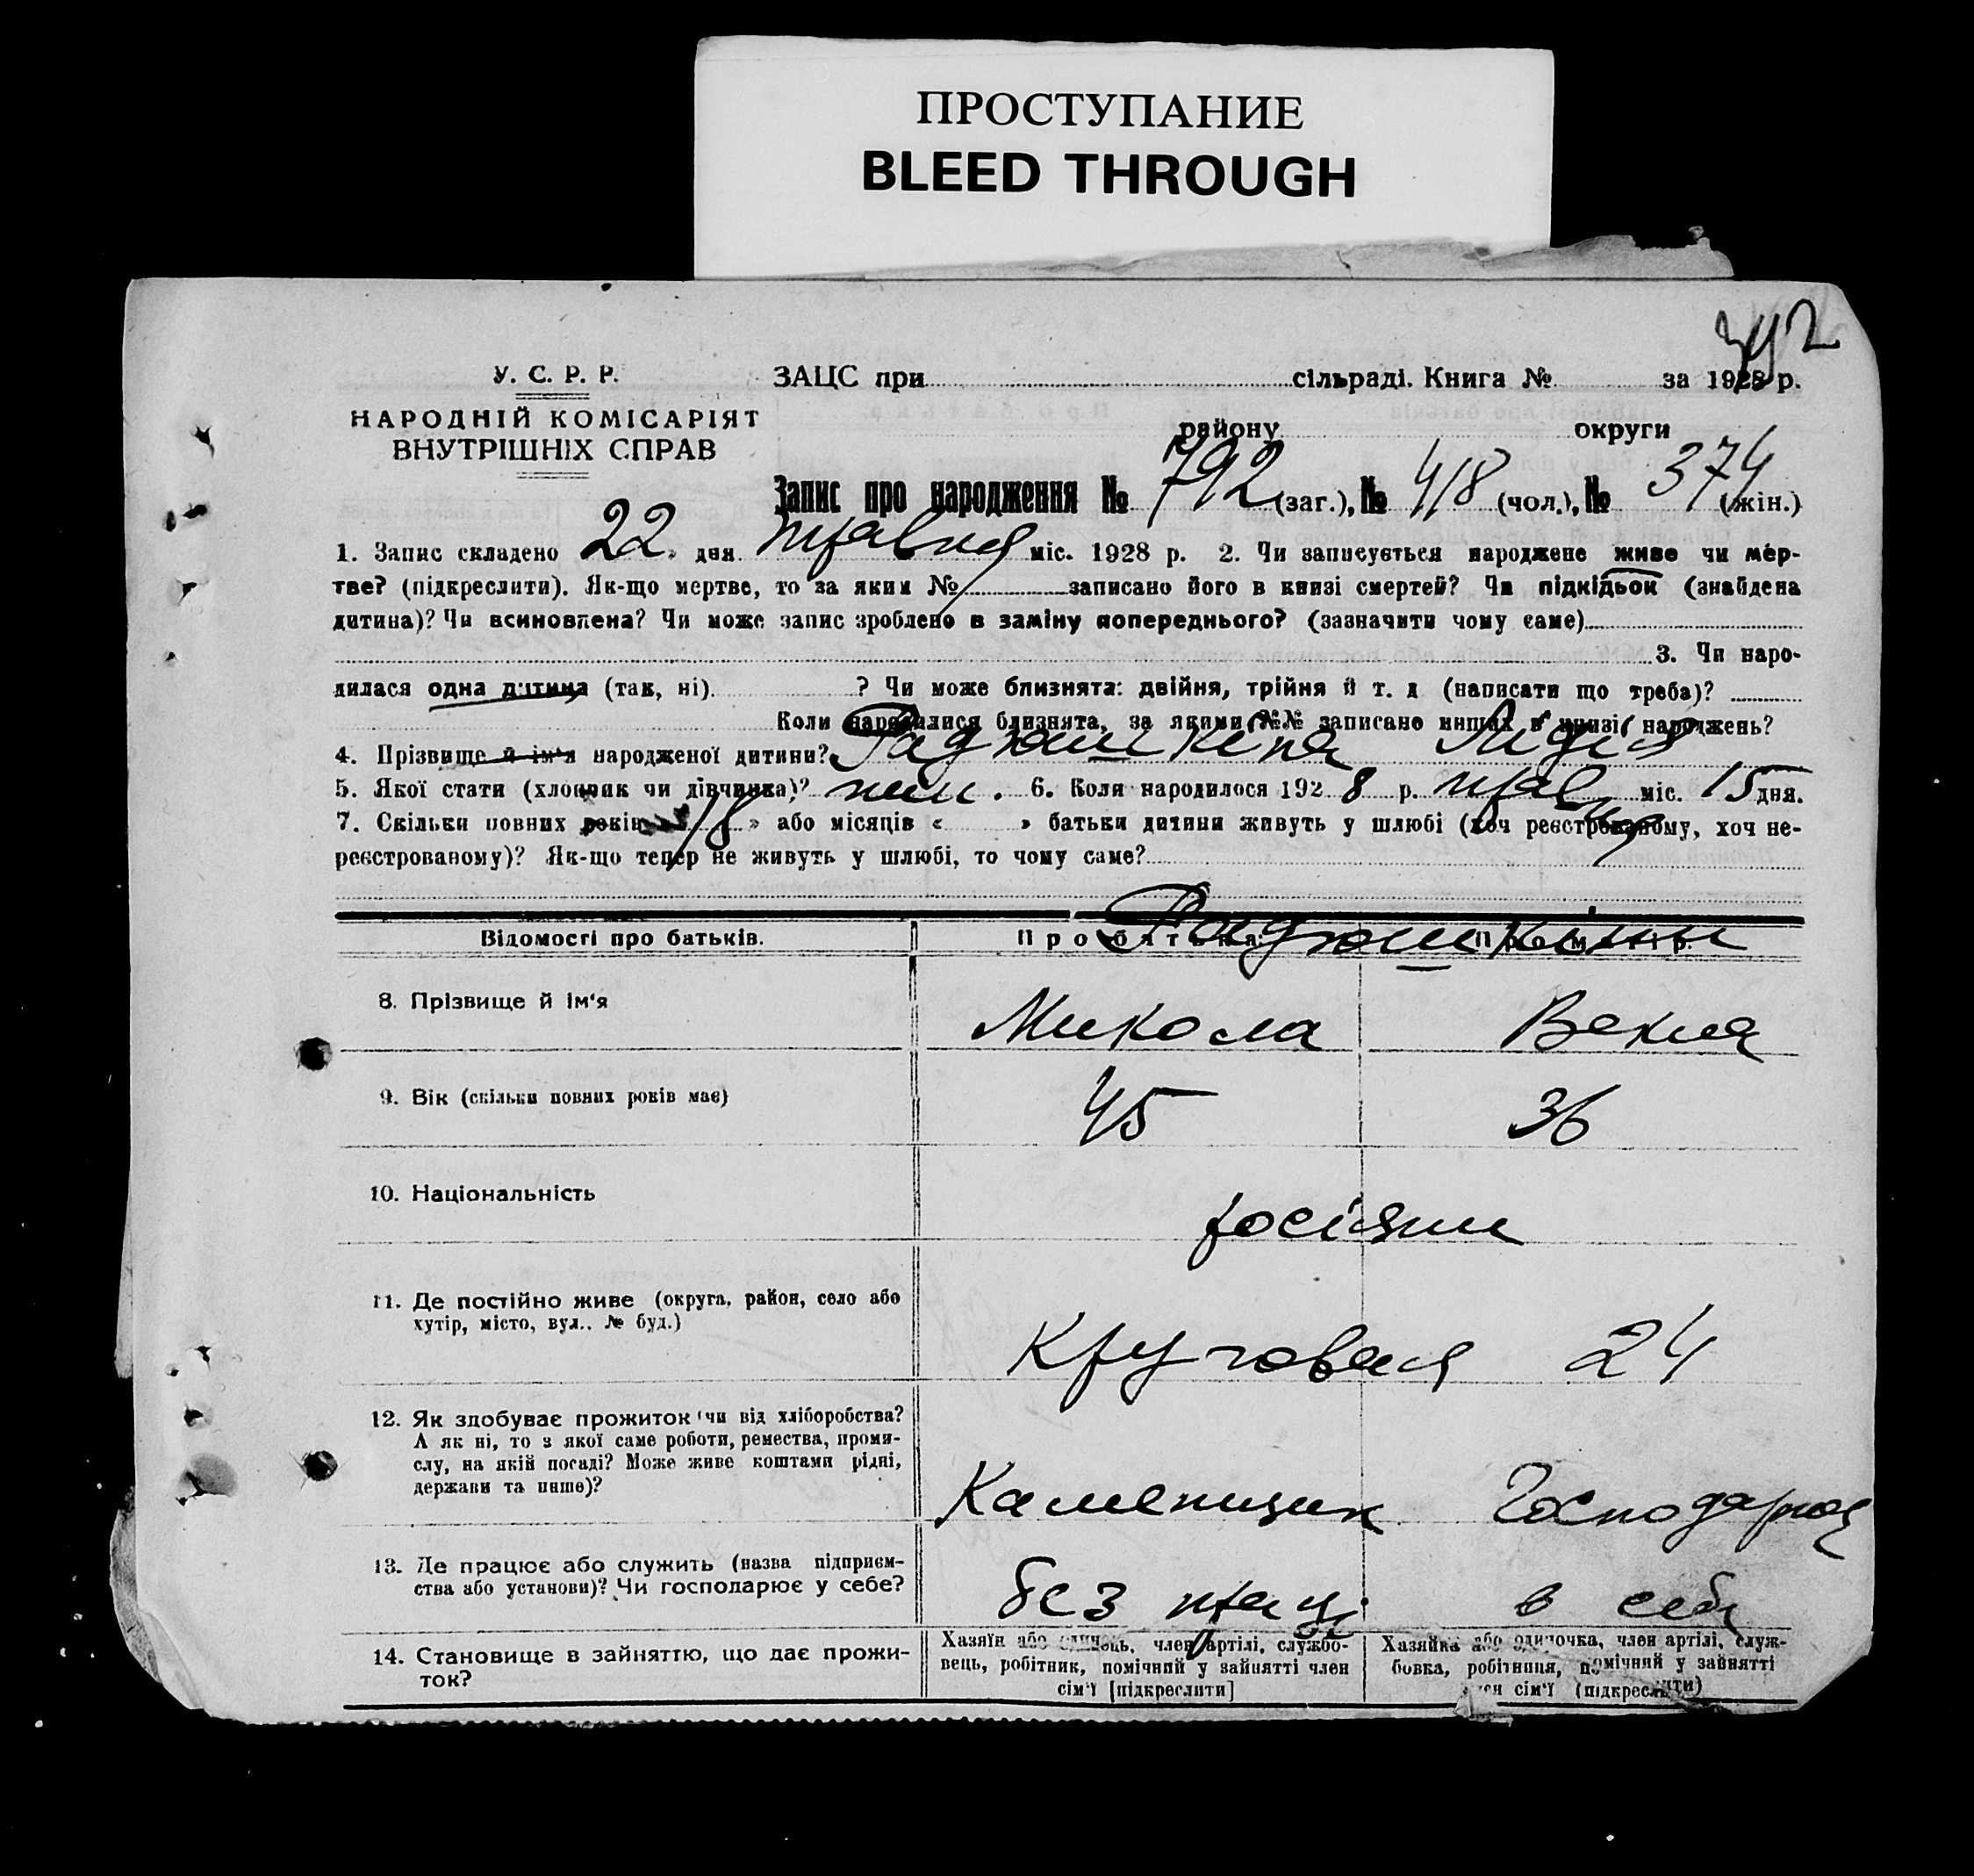 ПРОСТУПАНИЕ
BLEED THROUGH
392
У. С. Р. Р.
НАРОДНІЙ КОМІСАРІЯТ
ВНУТРІШНІХ СПРАВ
ЗАЦС при сільраді. Книга № за 1928 р.
району округи
Запис про народження № 792 (заг.), № 418 (чол.), № 374 (жін.)
1. Запис складено 22 » дня травня міс. 1928 р. 2. Чи записується народжене живе чи мер-
тве? (підкреслити). Як-що мертве, то за яким № записано його в книзі смертей? Чи підкідьок (знайдена
дитина)? Чи всиновлена? Чи може запис зроблено в заміну попереднього? (зазначити чому саме)
3. Чи наро-
дилася одна дитина (так, ні) ? Чи може близнята: двійня, трійня й т. д (написати що треба)?
Коли народилися близнята, за якими №№ записано инших в книзі народжень?
4. Прізвище й ім'я народженої дитини? Радюшкіна Лідія
5. Якої стати (хлопчик чи дівчинка)? жін. 6. Коли народилося 1928 р. травня міс. 15 дня.
7. Скільки повних років « 18 » або місяців « » батьки дитини живуть у шлюбі (хоч реєстрованому, хоч не-
реєстрованому)? Як-що тепер не живуть у шлюбі, то чому саме?
Радюшкіни
Відомості про батьків. Про батька. Про матір.
8. Прізвище й ім'я Микола Векла
9. Вік (скільки повних років має) 45 36
10. Національність росіяни
11. Де постійно живе (округа, район, село або
хутір, місто, вул.. № буд.)
Круговая 24
12. Як здобуває прожиток чи від хліборобства?
А як ні, то з якої саме роботи, ремества, проми-
слу, на якій посаді? Може живе коштами рідні,
держави та инше)?
Каменщик Господарює
13. Де працює або служить (назва підприєм-
ства або установи)? Чи господарює у себе?
без праці в себе
14. Становище в зайняттю, що дає прожи-
ток?
Хазяїн або одинець, член артілі, службо-
вець, робітник, помічний у зайнятті член
сім'ї [підкреслити]
Хазяйка або одиночка, член артілі, служ-
бовка, робітниця, помічний у зайнятті
член сім'ї (підкреслити)